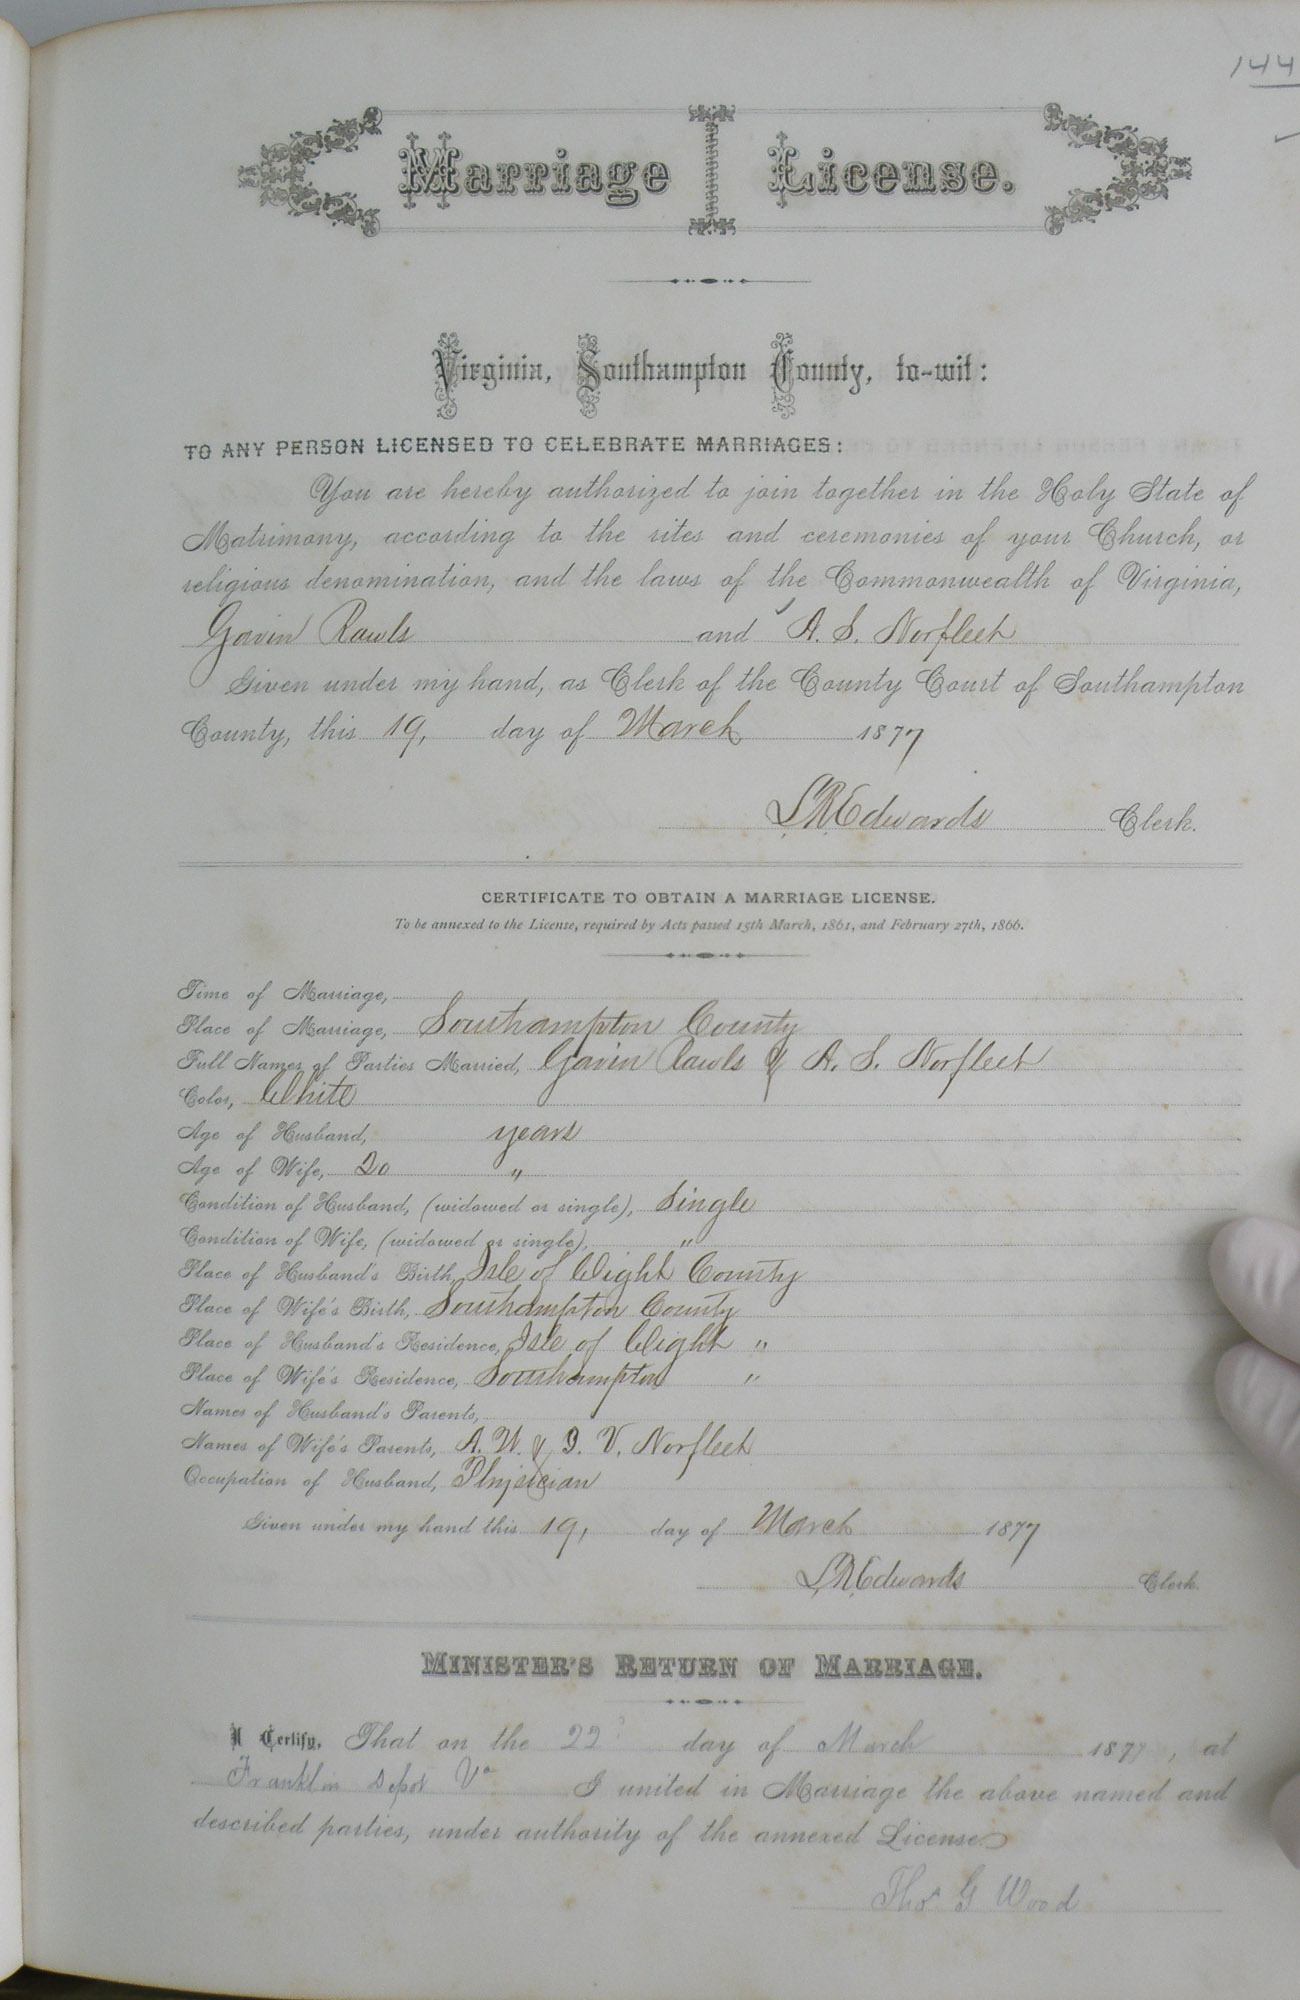 144
Marriage License.
Virginia, Southampton County, to-wit:
TO ANY PERSON LICENSED TO CELEBRATE MARRIAGES:
You are hereby authorized to join together in the Holy State of
Matrimony, according to the rites and ceremonies of your Church, or
religious denomination, and the laws of the Commonwealth of Virginia,
Gavin Rawls and A. S. Norfleet
Given under my hand, as Clerk of the County Court of Southampton
County, this 19, day of March 1877
L R Edwards Clerk.
CERTIFICATE TO OBTAIN A MARRIAGE LICENSE.
To be annexed to the License, required by Acts passed 15th March, 1861, and February 27th, 1866.
Time of Marriage,
Place of Marriage, Southampton County
Full Names of Parties Married, Gavin Rawls & A. S. Norfleet
Color, White
Age of Husband, years
Age of Wife, 20 "
Condition of Husband, (widowed or single), Single
Condition of Wife, (widowed or single), "
Place of Husband's Birth, Isle of Wight County
Place of Wife's Birth, Southampton County
Place of Husband's Residence, Isle of Wight "
Place of Wife's Residence, Southampton "
Names of Husband's Parents,
Names of Wife's Parents, A. W. & I. V. Norfleet
Occupation of Husband, Physician
Given under my hand this 19, day of March 1877
L R Edwards Clerk.
MINISTER'S RETURN OF MARRIAGE.
I Certify, That on the 22 day of March 1877, at
Franklin Depot Va I united in Marriage the above named and
described parties, under authority of the annexed License
Thos G Wood